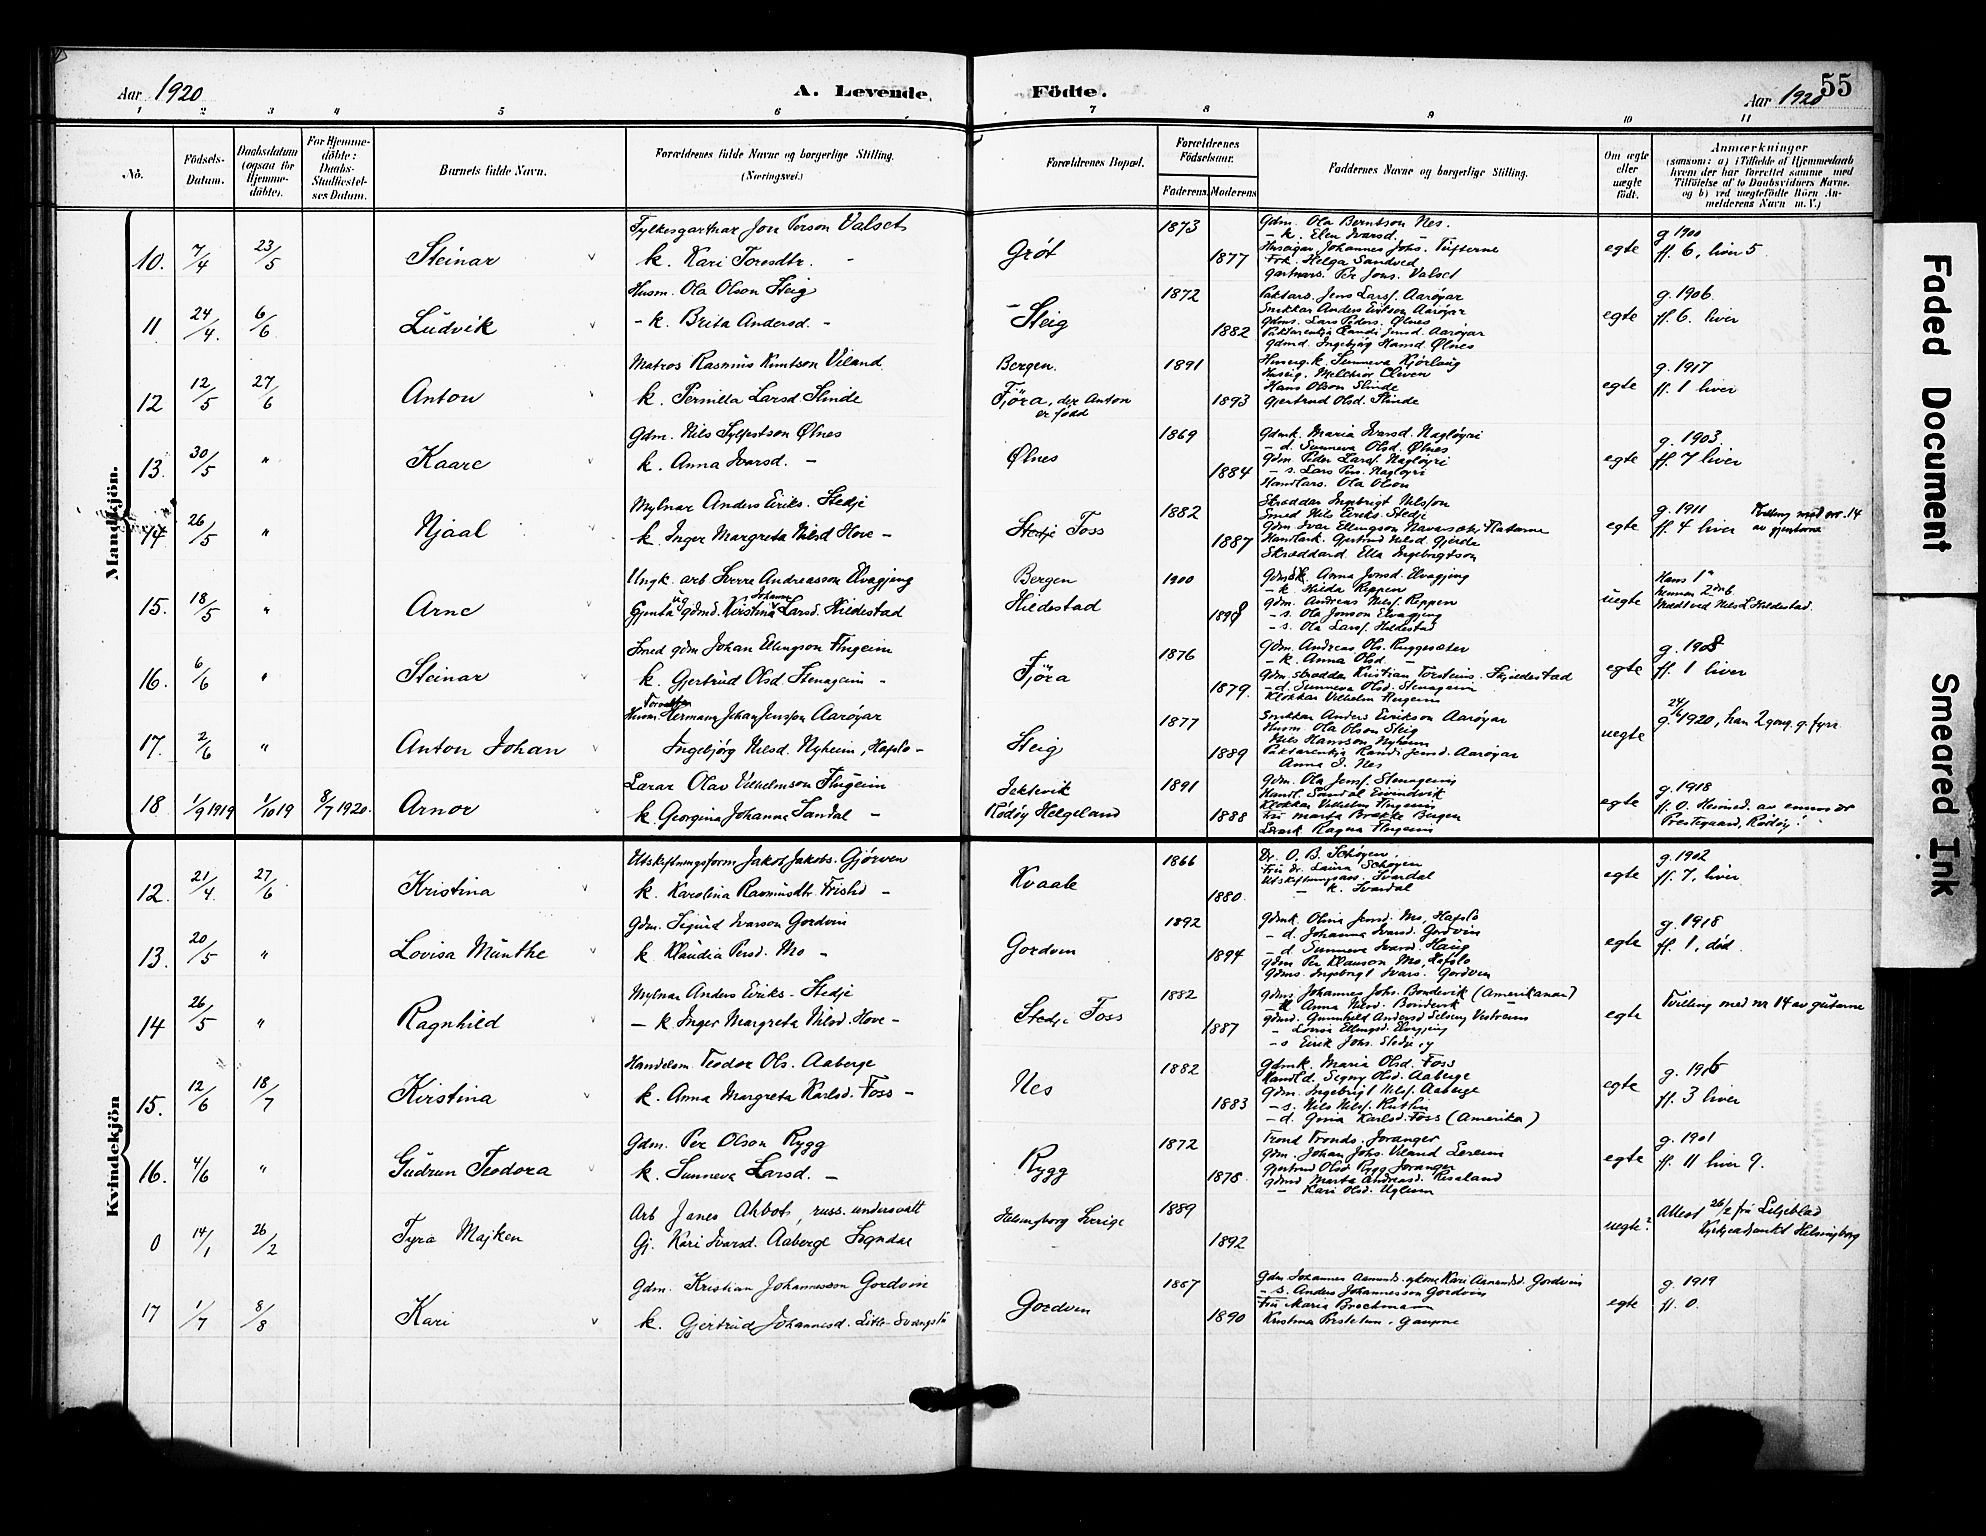 Aar 1920
A. Levende Födte.
Aar 1920
55
1 2 3 4 5 6 7 8 9 10 11
No.
Födsels-Datum.
Daabsdatum (ogsaa for Hjemmedöbte).
For Hjemmedöbte: Daabs-Stadfæstelses Datum.
Barnets fulde Navn.
Forældrenes fulde Navne og borgerlige Stilling.
(Næringsvei.)
Forældrenes Bopæl.
Forældrenes Födselsaar.
Faderens. Moderens.
Faddernes Navne og borgerlige Stilling.
Om ægte eller uægte födt.
Anmærkninger
(saasom: a) i Tilfælde af Hjemmedaab
hvem der har forrettet samme med
Tilföielse af to Daabsvidners Navne.
og b) ved uægtefödte Börn An-
melderens Navn m. V.)
Mandkjön.
10. 7/4 23/5 Steinar
Fylkesgartnar Jon Person Valset
k. Kari Toresdtr. -
Grøt
1873
1877
Gdm. Ola Berntson Nes.
- k. Elen Ivarsd. -
Huseigar Johannes Johs. Tufterne
Frk. Helga Sandved
Gartnars. Per Jons. Valset
egte
g 1900
ff. 6, liver 5
11 24/4. 6/6 Ludvik
Husm. Ola Olson Steig
- k. Brita Andersd. -
Steig
1872
1882
Paktars. Jens Larss. Aarøyar
Snekkar Anders Eirikson Aarøyar
Gdms. Lars Peders. Ølnes
Paktarenkja Randi Jensd. Aarøyar
Gdmd. Ingebjøg Hansd. Ølnes
egte
g. 1906.
ff. 6. liver
12 12/5 27/6 Anton
Matros Rasmus Knutson Viland
k. Pernilla Larsd Slinde
Bergen.
Fjøra, der Anton
er fødd
1891
1893
Huseig. k. Sunneva Kjørlaug
Huseig. Melchior Cleven
Hans Olson Slinde
Gjertrud Olsd. Slinde
egte
g. 1917
ff. 1 liver
13. 30/5 " Kaare
Gdm. Nils Sylfestson Ølnes
k. Anna Ivarsd. -
Ølnes
1869
1884
Gdmk. Maria Ivarsd. Nagløyri
- d. Sunneva Olsd. Ølnes
Gdm. Peder Larss. Nagløyri
- s. Lars Pers. Nagløyri
Handlars. Ola Olson
egte
g. 1903.
ff. 7 liver
14 26/5 " Njaal
Mylnar Anders Eiriks. Stedje
k. Inger Margreta Nilsd Hove -
Stedje Foss
1882
1887
Skræddar Ingebrigt Nilsson
Smed Nils Eiriks. Stedje
Gdm. Ivar Ellingson Navarsete, Flatarne
Handlark. Gjertrud Nilsd. Gjerde
Skræddard. Ella Ingebrigtson
egte
g. 1911
ff. 4 liver
Tvilling med nr. 14
av gjentarne
15. 18/5 " Arne
Ungk. arb Sverre Andreasson Elvagjeng
Gjenta ug gdmd. Kirstina Johanna Larsd. Hildestad
Bergen
Hildestad
1900
1898
Gdmsk. Anna Jonsd. Elvagjeng
- k. Hilda Reppen
Gdm. Andreas Nilss. Reppen
- s. Ola Jonson Elvagjeng
- s. Ola Larss. Hildestad
uegte
Hans 1ste
hennar 2dre b
Mødt ved Nils L Hildestad.
16. 6/6 " Steinar
Smed gdm Johan Ellingson Flugeim
k. Gjertrud Olsd Stenageim -
Fjøra
1876
1879.
Gdm. Andreas Ols. Ruggesæter
- k. Anna Olsd. -
Gdm. skræddar Kristian Torsteins. Skjeldestad
- d. Sunneva Olsd. Stenageim
Klokkar Vilhelm Flugeim
egte
g. 1908
ff. 1 liver
17. 2/6 " Anton Johan
Husm. Hermann Johan Jensson Aarøyar
Ingebjørg Nilsd. Nyheim, Hafslo -
Steig
1877
1889
Snekkar Anders Eirikson Aarøyar
Husm. Ola Olson Steig
Nils Hansson Nyheim
Paktarenkja Randi Jensd. Aarøyar
Anna S. Nes
uegte
g. 24/4 1920, han 2 gong g. fyrr
18 1/9 1919 1/10 19 8/7 1920. Arnor
Lærar Olav Vilhelmson Flugeim
k. Georgina Johanne Sandal -
Jektevik
Rødøy Helgeland
1891
1888
Gdm. Ola Jenss. Stenageim
Handl. Sandal Eivindvik
Klokkar Vilhelm Flugeim
Fru Marta Brække Bergen
Lærark. Ragna Flugeim
egte
g. 1918
ff. 0. Heimed. av
Prestegaard, Rødøy.
Kvindekjön
12. 21/4 27/6 Kristina
Utskiftningsform Jakob Jakobs. Gjørven
k. Karolina Rasmusdtr. Fristed -
Kvaale
1866
1880.
Dr. O. B. Schøyen.
Fru dr. Laura Schøyen
Utskiftningsass. Svardal
- k. Svardal
egte
g. 1902
ff. 7, liver
13. 20/5 " Lovisa Munthe
Gdm. Sigurd Ivarson Gordvin
k Klaudia Persd. Mo -
Gordven
1892
1894
Gdmk. Olina Jensd. Mo, Hafslo
- d. Johanna Ivarsd. Gordvin
- d. Sunneva Ivarsd. Haug
Gdm Per Klauson Mo, Hafslo
Gdms. Ingebrigt Ivars. Gordven
egte
g. 1918
ff. 1, død.
14 26/5 " Ragnhild
Mylnar Anders Eiriks. Stedje
- k Inger Margreta Nilsd. Hove -
Stedje Foss
1882
1887
Gdms Johannes Johs. Bondevik (Amerikanar)
- k Anna Nilsd. Bondevik
Gdmd. Gunnhild Andersd Selseng Vestreim
- Lovisa Ellingsd. Elvagjeng
- s Eirik Johs. Stedje, y
egte
Tvilling med no 14 av gutarne
15. 12/6 18/7 Kirstina
Handelsm. Teodor Ols. Aaberge
k. Anna Margreta Karlsd. Foss -
Nes
1882
1883
Gdmk. Maria Olsd. Foss
Handl d. Segny Olsd. Aaberge
Gdm. Ingebrigt Nilss. Aaberge
- s. Nils Nilss. Rutlin
- d. Gina Karlsd. Foss (Amerika)
egte
g. 1915
ff. 3 liver
16. 4/6 " Gudrun Teodora
Gdm. Per Olson Rygg
k. Sunneva Larsd. -
Rygg
1872
1878
Trond Tronds. Joranger
Gdm. Johan Johs. Viland Lereim
Gjertrud Olsd Rygg Joranger
Gdmd Marta Andreasd. Risaland
- Kari Olsd. Uglum
egte
g. 1901
ff. 11 liver 9.
0 14/1 26/2 Tyra Majken
Arb Janes Ahbots, russ. undersaatt
Gj. Kari Ivarsd. Aaberge Sogndal
Helsingborg Sverige
1889
1892
uegte?
Attest 26/2 frå Liljeblad
Kyrkjeadjunkt Helsingborg
17 1/7 8/8 Kari
Gdm. Kristian Johannesson Gordvin
k. Gjertrud Johannesd. Litle-Svangstu
Gordven
1887
1890
Gdm Johannes Aamunds. og kone Kari Aamundsd. Gordvin
- s. Anders Johannesson Gordvin
Fru Maria Brochmann
Kristina Prestetun, Gaupne
egte
g. 1919
ff. 0.
Faded Document
Smeared Ink